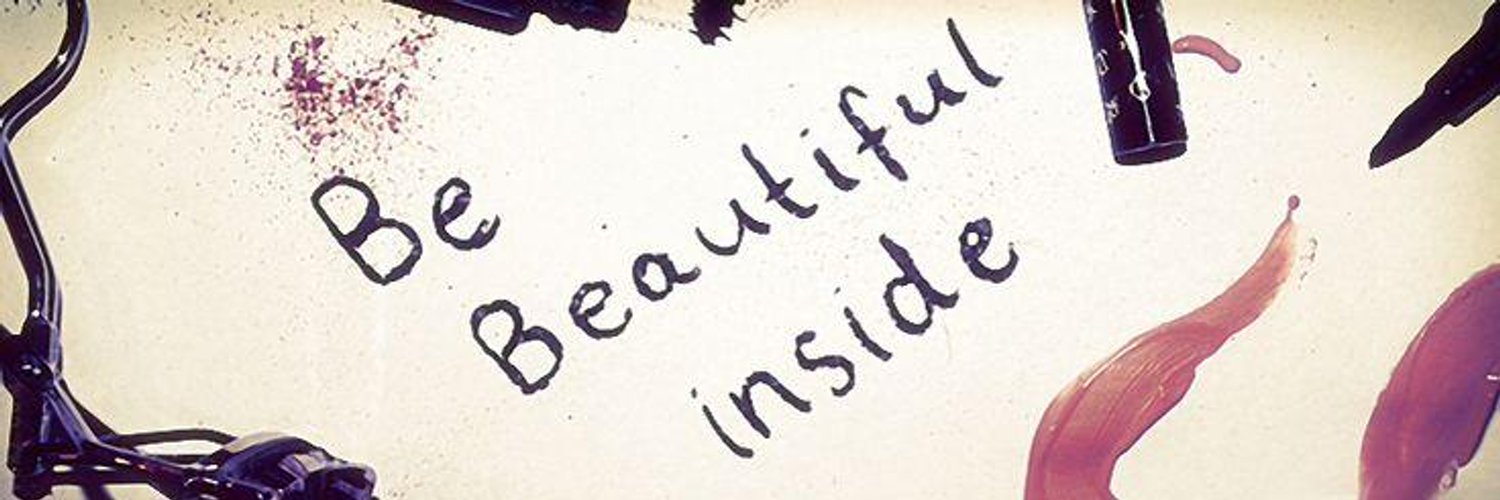 Be
Beautiful
inside